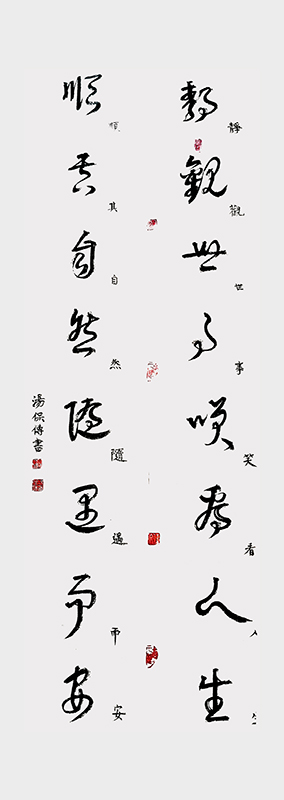 靜觀世事笑看人生
靜觀世事笑看人
順其自然隨遇而安
順其自然隨遇而安
湯保傅書